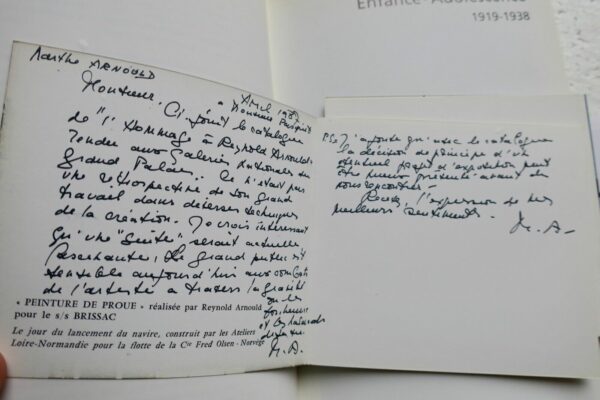 Enfance - Adolescence
1919-1938
Marthe ARNOULD
Avril 198
à Monsieur
Monsieur, Ci-joint le catalogue
de "l'Hommage à Reynold Arnould"
rendu aux Galeries Nationales du
Grand Palais. Ce n'était pas
une rétrospective de son grand
travail dans diverses techniques
de la création. Je crois intéressant
qu'une "suite" serait actuelle
Le grand public est
sensible aujourd'hui aux combats
de l'artiste à travers la gravité
ou les
bonheurs
et
de la vie
M. A.
« PEINTURE DE PROUE » réalisée par Reynold Arnould
pour le s/s BRISSAC
Le jour du lancement du navire, construit par les Ateliers
Loire-Normandie pour la flotte de la Cie Fred Olsen - Norvège
J'ajoute qu'avec le catalogue
la décision de principe d'un
éventuel projet d'exposition peut
être mieux présentée avant de
nous rencontrer -
l'expression de mes
meilleurs sentiments.
M. A-